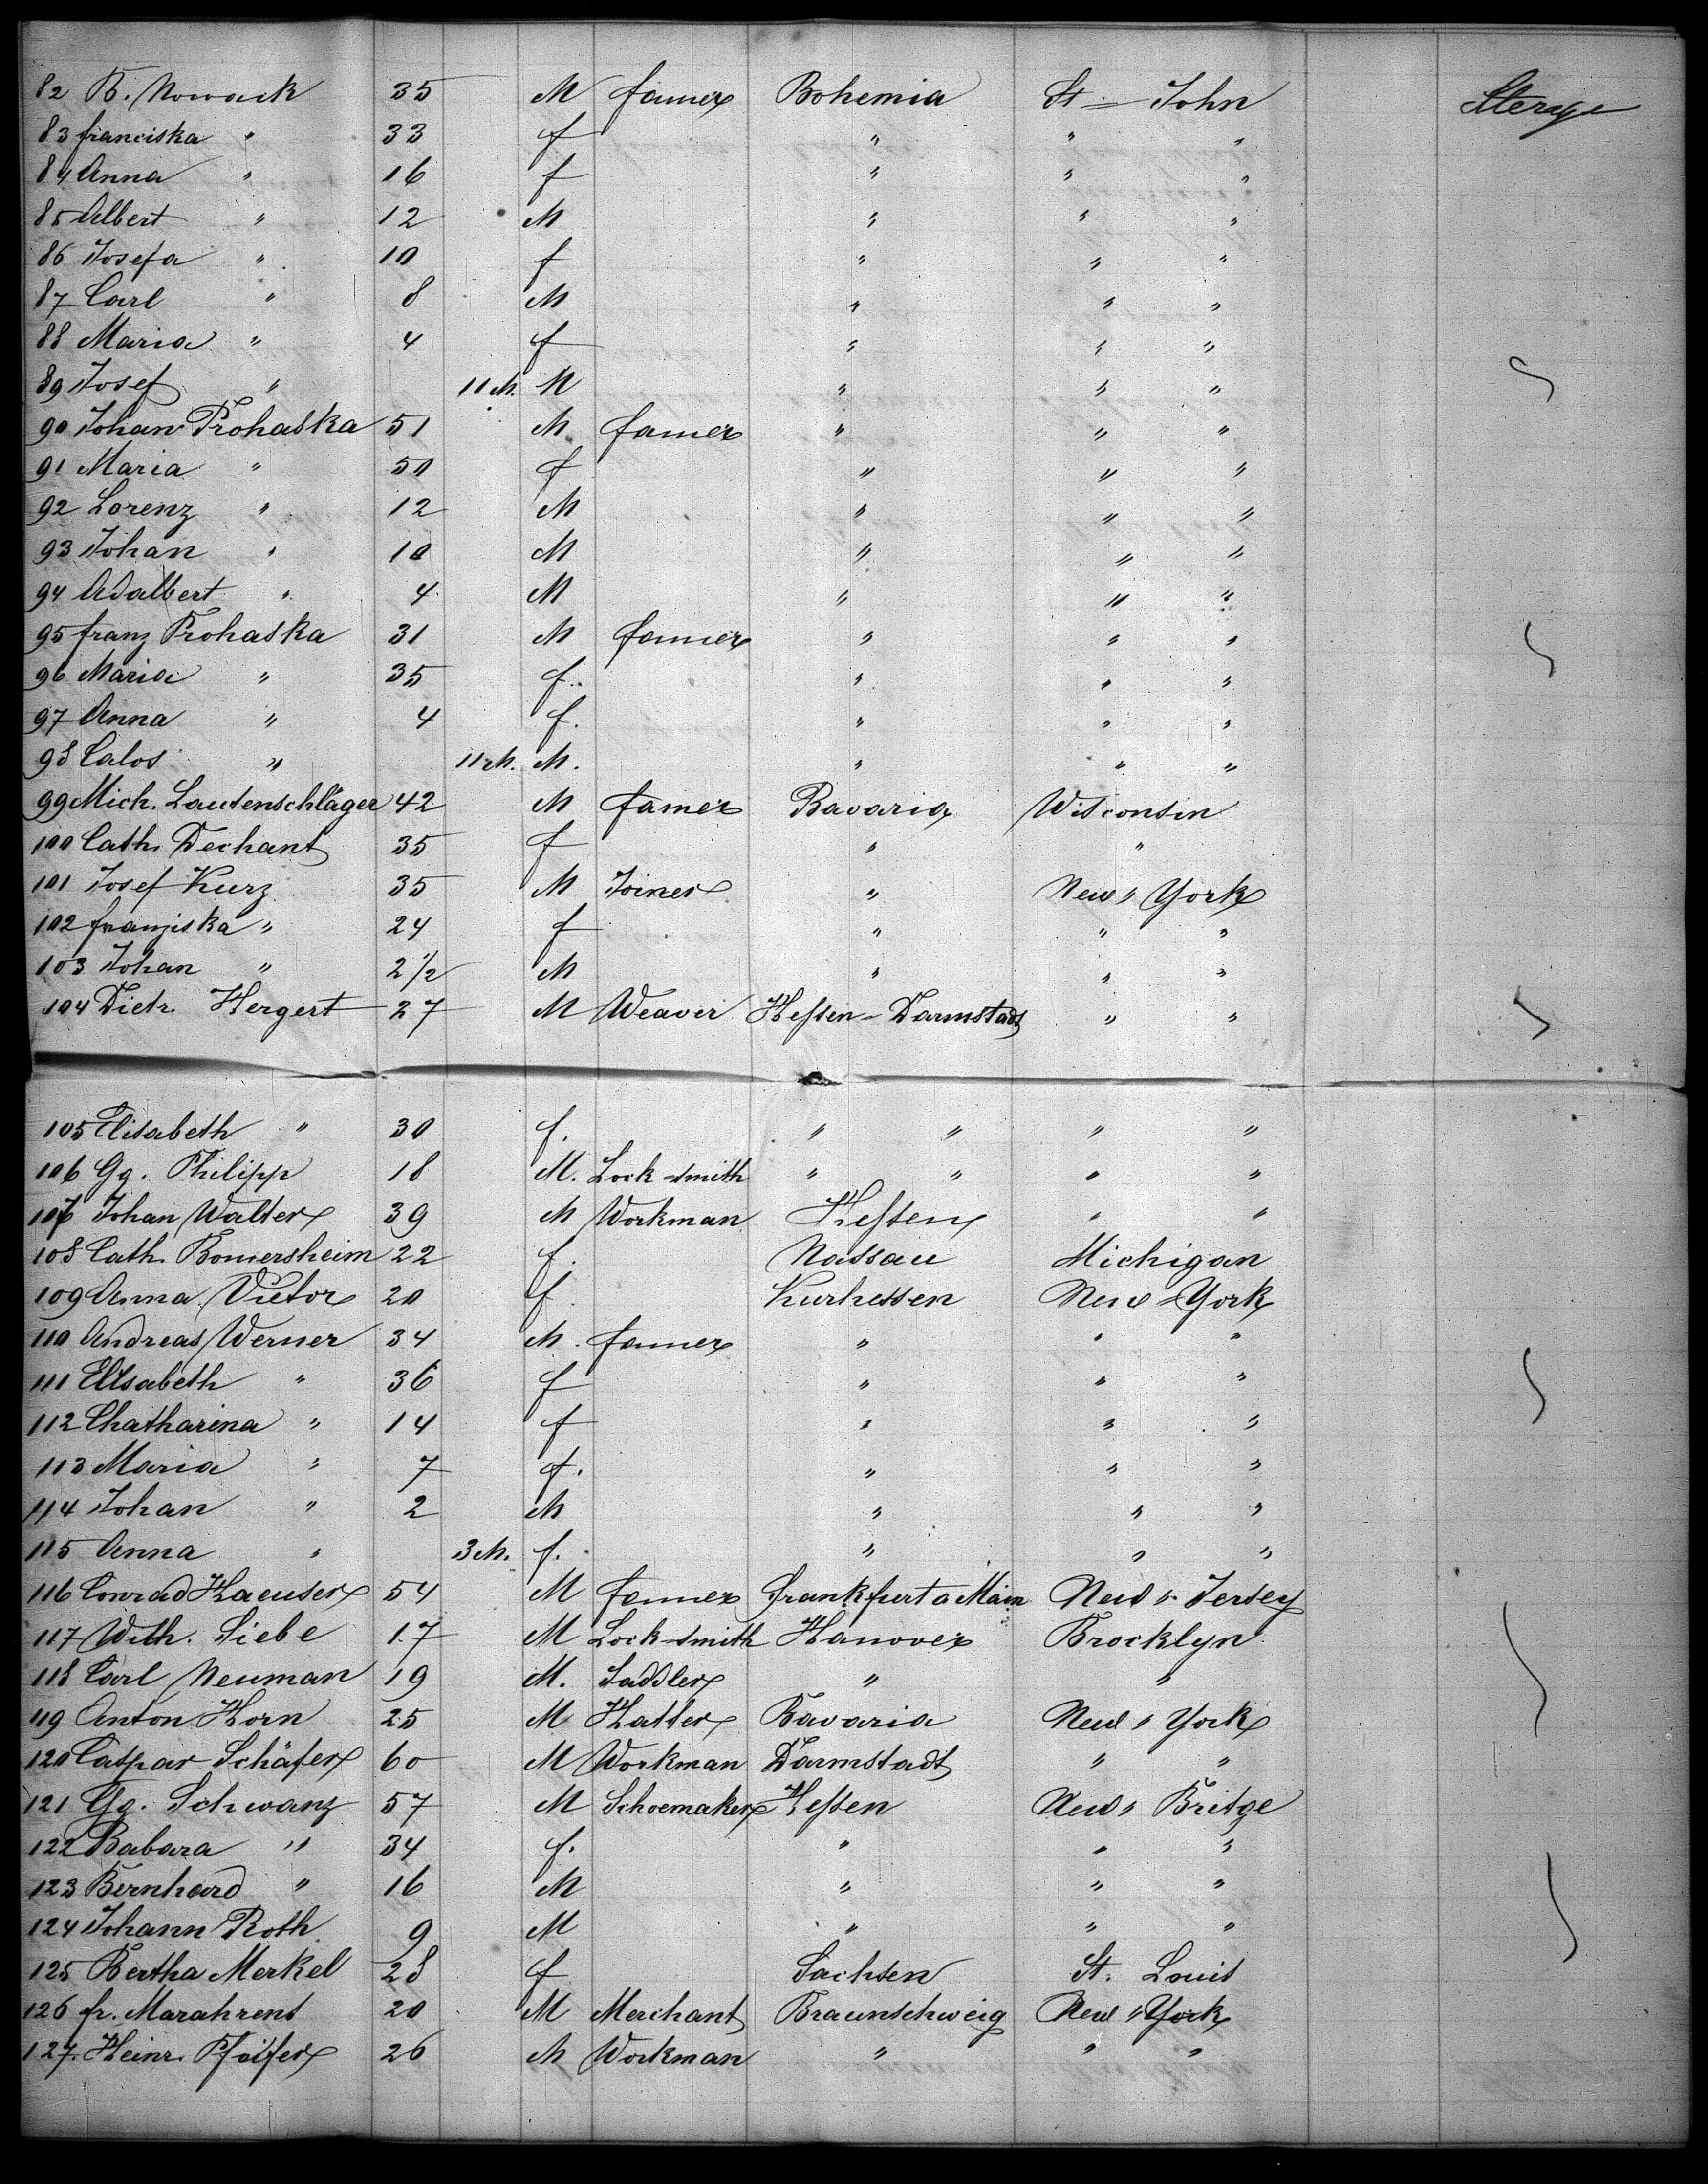 82 B. Nowack 35 M famer Bohemia St = John Sterage
83 franciska " 33 f " " "
84 Anna " 16 f " " "
85 Albert " 12 M " " "
86 Josefa " 10 f " " "
87 Carl " 8 M " " "
88 Maria " 4 f " " "
89 Josef " 11 M. M " " "
90 Johan Prohaska 51 M famer " " "
91 Maria " 50 f " " "
92 Lorenz " 12 M " " "
93 Johan " 10 M " " "
94 Adalbert " 4 M " " "
95 franz Prohaska 31 M famer " " "
96 Maria " 35 f. " " "
97 Anna " 4 f. " " "
98 Calos " 11 M. M. " " "
99 Mich. Lautenschläger 42 M famer Bavaria Wisconsin
100 Cath. Dechant 35 f " "
101 Josef Kurz 35 M Joiner " New " York
102 franziska " 24 f " " "
103 Johan " 2 1/2 M " " "
104 Dietr. Hergert 27 M Weaver Hessen - Darmstadt " "
105 Elisabeth " 30 f. " " " "
106 Gg. Philipp 18 M. Lock smith " " " "
107 Johan Walter 39 M Workman Hessen " "
108 Cath. Bomersheim 22 f. Nassau Michigan
109 Anna Victor 20 f Kurhessen New = York
110 Andreas Werner 34 M. famer " " "
111 Elisabeth " 36 f " " "
112 Chatharina " 14 f " " "
113 Maria " 7 f. " " "
114 Johan " 2 M " " "
115 Anna " 3 M. f. " " "
116 Conrad Haeuser 54 M famer Frankfurt a Main New " Jersey
117 Wilh. Siebe 17 M Lock-smith Hanover Brocklyn
118 Carl Neuman 19 M. Saddler " "
119 Anton Horn 25 M Hatter Bavaria New " York
120 Caspar Schäfer 60 M Workman Darmstadt " "
121 Gg. Schwanz 57 M Schoemaker Hessen New " Britge
122 Babara " 34 f. " " "
123 Bernhard " 16 M " " "
124 Johann Roth 9 M " " "
125 Bertha Merkel 28 f Sachsen St. Louis
126 fr. Marahrens 20 M Merchant Braunschweig New " York
127. Heinr. Pfeifer 26 M Workman " " "